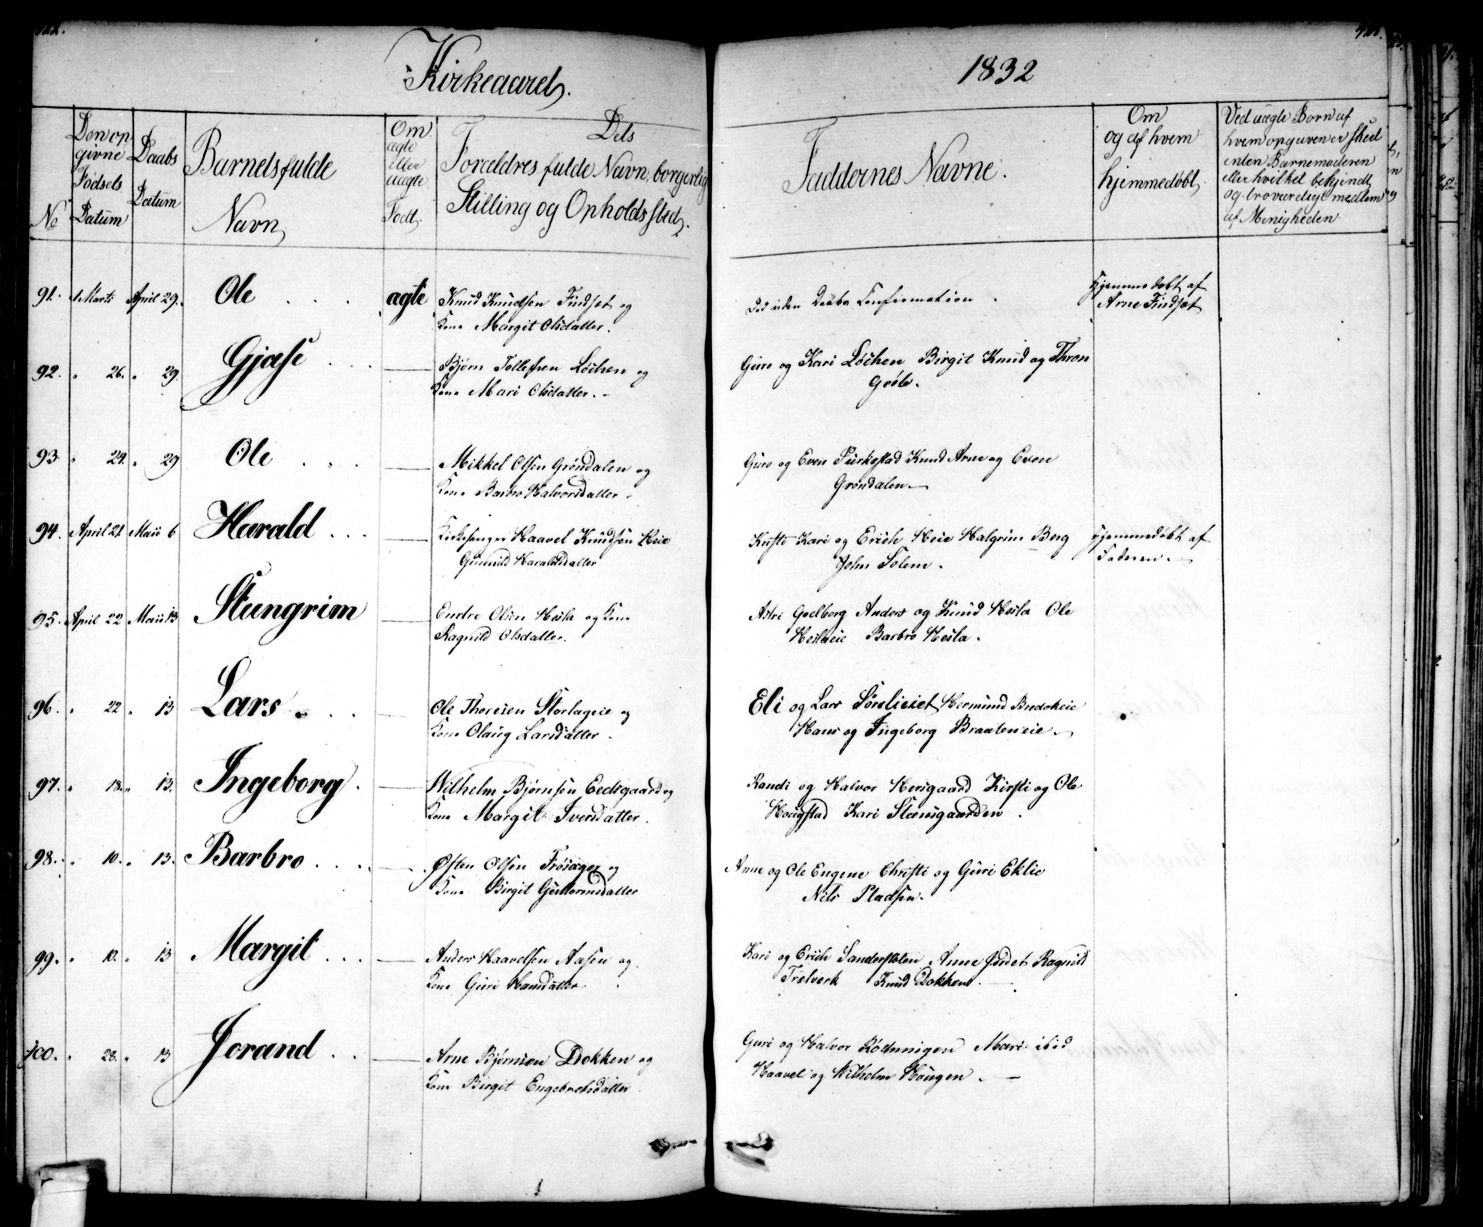 Kirkeaaret
1832
No
Den op
givne
Fødsels
Datum
Daabs
Datum
Barnets fulde
Navn
Om
ægte
eller
uægte
Født
Dets
Forældres fulde Navn, borgerlig
Stilling og Opholdssted.
Faddernes Navne.
Om
og af hvem
hjemmedøbt
Ved uægte Børn af
hvem opgiven er sked
enten Barnemoderen
eller hvilket bekjendt
og troværdigt medlem
af Menigheden
91. 1 Marti April 29. Ole ægte Knud Knudsen Findset og
Kone Margit Olsdatter.
Død uden Daabs Confirmation
Hjemmedøbt af
Arne Findset
92. " 26. " 29. Gjøse Bjørn Tollefsen Løchen og
Kone Mari Olsdatter.
Guro og Kari Løchen Birgit Knud og Thron
Grøle.
93 " 24. " 29 Ole Mikkel Olsen Grøndalen og
Kone Barbro Halvorsdatter
Guro og Even Kirkestad Knud Arne og Even
Grøndalen
94. April 21 Maii 6 Harald Kirkesanger Haavel Knudsen Heie
Gunnild Haraldsdatter
Kristi Kari og Erich Heie Halgrim Berg
John Solem.
Hjemmedøbt af
Faderen.
95. April 22 Maii 13 Steingrim Endre Olsen Hesla og Kone
Ragnild Olsdatter.
Astri Goelberg Anders og Knud Hesla Ole
Heslaeie Barbro Hesla.
96. " 22 " 13 Lars Ole Thoresen Storlageie og
Kone Olaug Larsdatter.
Eli og Lars Sørelieiet Hermund Bredokeie
Hans og Ingeborg Braateneie
97. " 18. " 13. Ingeborg Wilhelm Bjørnsen Eedsgaard og
Kone Margit Iversdatter.
Randi og Halvor Hersgaard Kirsti og Ole
Hougstad Kari Steensgaarden
98. " 10. " 13. Barbro Østen Olsen Trøsager og
Kone Birgit Guttormsdatter
Anne og Ole Engene Christi og Guri Eklie
Nils Pladsen.
99. " 10. " 13 Margit Anders Haavelsen Aasen og
Kone Guri Hansdatter
Kari og Erich Sanderstølen Anne Jordet Ragnild
Trælverk Knud Dokken
100. " 28. " 13 Jorand Arne Bjørnsen Dokken og
Kone Birgit Engebretsdatter
Guri og Halvor Rothnigen Mari ibid
Haavel og Wilhelm Hougen.